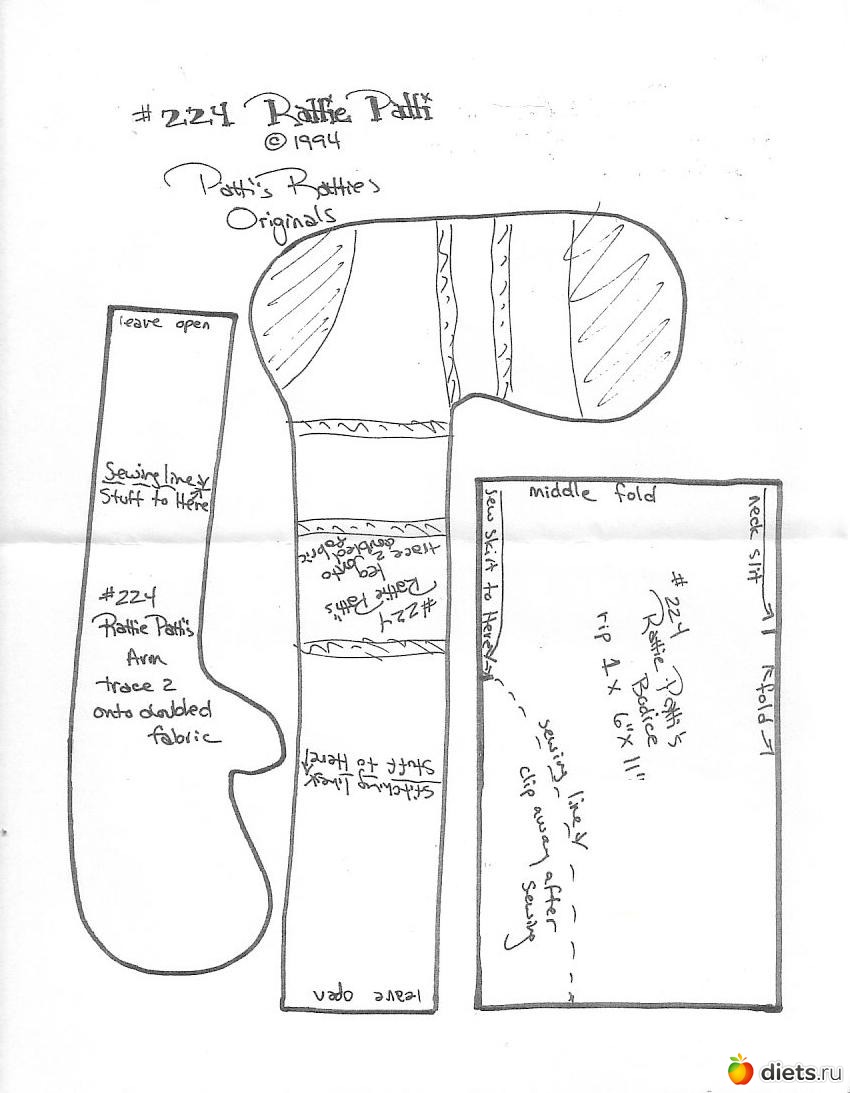 #224 Rattie Patti
©1994
Patti's Ratties
Originals
leave open
Sewing line
Stuff to Here
#224
Rattie Patti's
Arm
trace 2
onto doubled
fabric
#224
Rattie Patti's
leg
trace 2 onto
doubled fabric
stitching line
Stuff to Here!
leave open
middle fold
neck slit
fold
sew skirt to Here
#224
Rattie Patti's
Bodice
rip 1 x 6"x11"
sewing line
clip away after
sewing
diets.ru